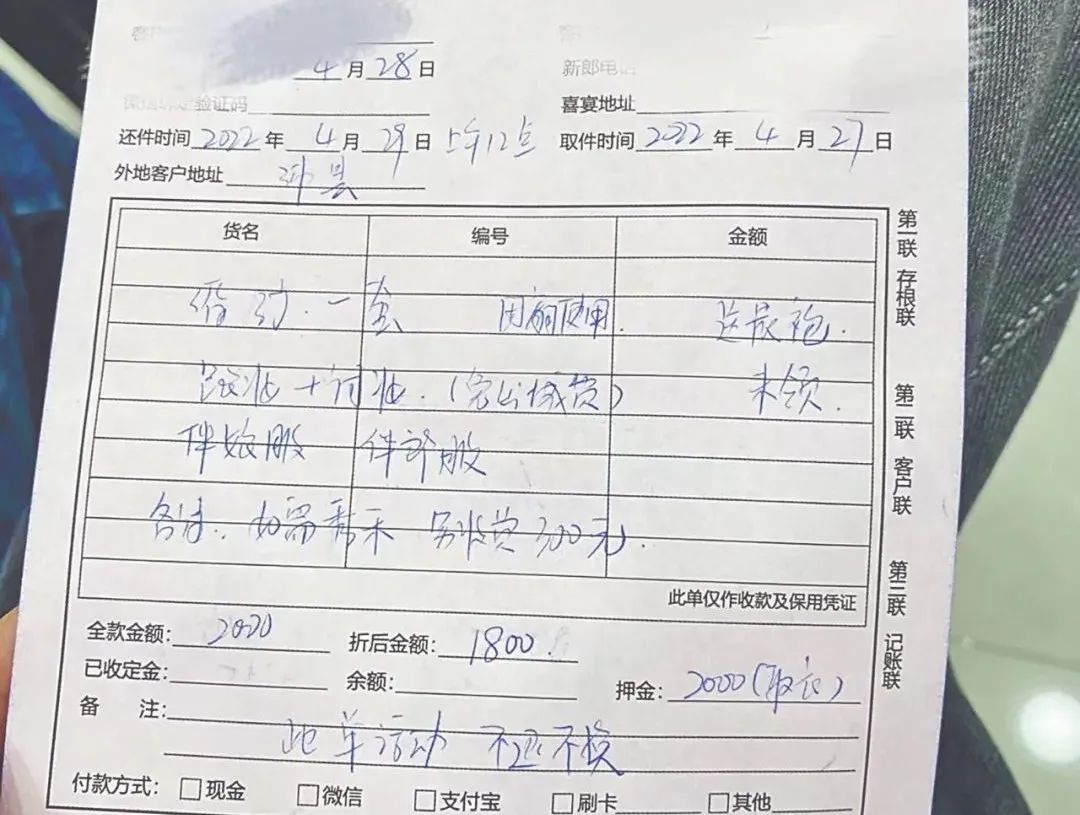 4月28日 新郎电话
验证码 喜宴地址
还件时间 2022年 4月29日 上午12点 取件时间 2022年 4月27日
外地客户地址 沛县
货名 编号 金额
婚纱一套 送晨袍.
跟妆+ 妆.(含出城费) 未领.
伴娘服 伴郎服
备注: 如需秀禾 另收费300元.
此单仅作收款及保用凭证
全款金额: 2020 折后金额: 1800.
已收定金: 余额: 押金: 2000(取衣)
备 注: 此单活动 不退不换
付款方式: □现金 □微信 □支付宝 □刷卡 □其他
第一联 存根联
第二联 客户联
第三联 记账联